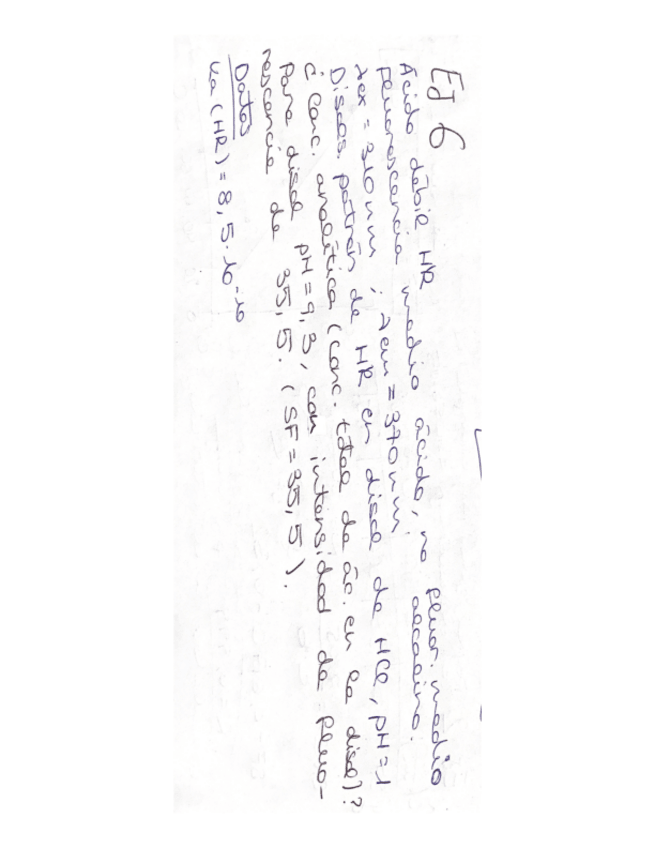 EJ 6
Ácido débil HR medio ácido, no fluor. medio
alcalino.
fluorescencia
λex = 310 nm ; λem = 370 nm.
Disos. patrón de HR en disol de HCl, pH=1
¿ Conc. analítica (conc. total de ác. en la disol)?
Para disol pH=9,3, con intensidad de fluo-
rescencia de 35,5. (SF=35,5).
Datos
Ka (HR) = 8,5·10-10